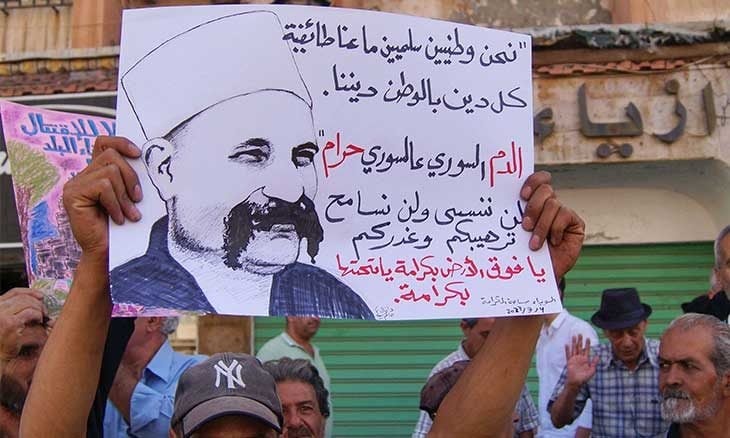 "نحن وطنيين سلميين ما عنا طائفية
كل دين بالوطن ديننا.
الدم السوري عالسوري حرام"
لن ننسى ولن نسامح
ترهيبكم وغدركم
يا فوق الأرض بكرامة يا تحتها
بكرامة.
السويداء ساحة الكرامة
لا للاقتتال
البلد
ازياء
NY